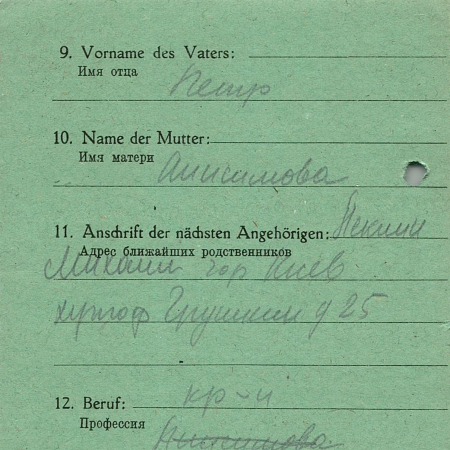 9. Vorname des Vaters:
Имя отца
Петр
10. Name der Mutter:
Имя матери
Анисимова
11. Anschrift der nächsten Angehörigen:
Адрес ближайших родственников
Михаил гор Киев
Грушки д 25
12. Beruf: кр-н
Профессия
Анисимова